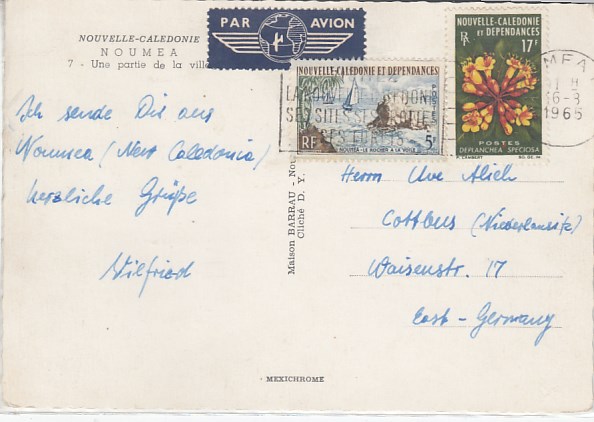 NOUVELLE-CALEDONIE
NOUMEA
7 - Une partie de la ville
PAR AVION
NOUVELLE-CALEDONIE ET DEPENDANCES
POSTES
RF
NOUMEA - LE ROCHER A LA VOILE
5F
NOUVELLE-CALEDONIE
ET DEPENDANCES
RF
17F
POSTES
DEPLANCHEA SPECIOSA
P. LAMBERT
SES SITES SES
MEA
6-8
1965
Ich sende Dir aus
Noumea (New Caledonia)
herzliche Grüße
Wilfried
Maison BARRAU - Nou
Cliché D. Y.
Herrn Uwe Alich
Cottbus (Niederlausitz)
Waisenstr. 17
East-Germany
MEXICHROME